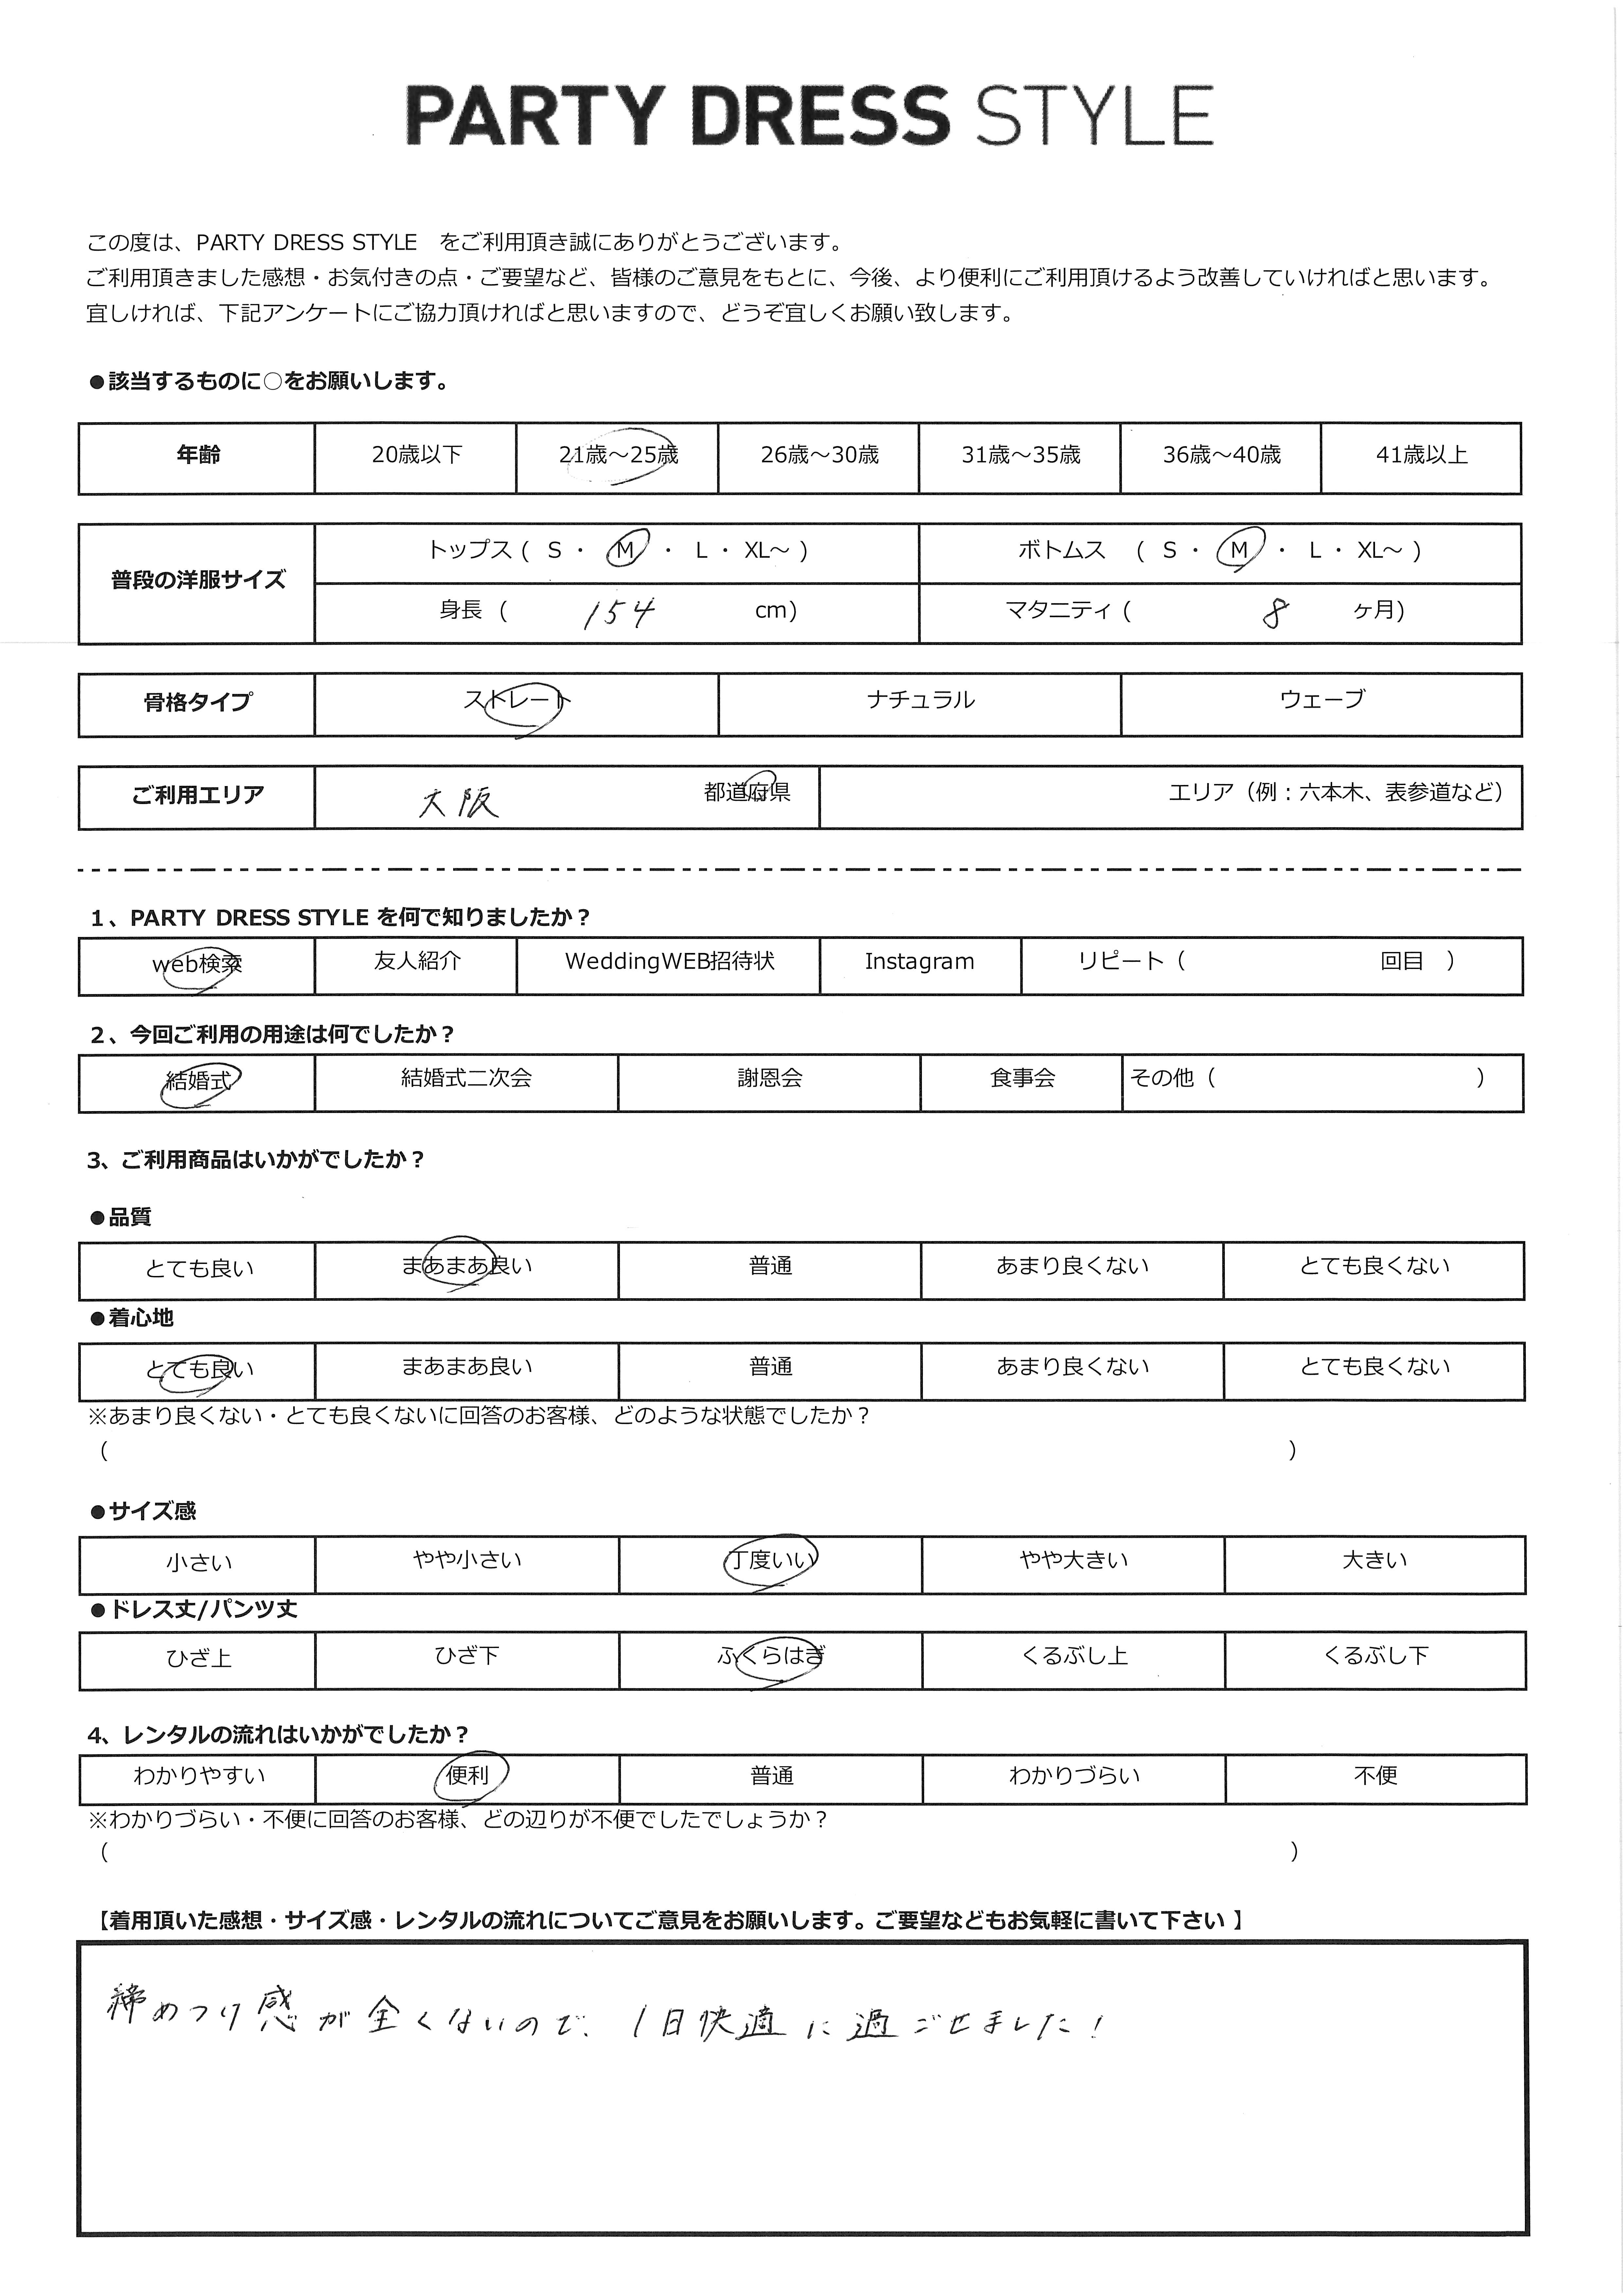 PARTY DRESS STYLE
この度は、PARTY DRESS STYLE　をご利用頂き誠にありがとうございます。
ご利用頂きました感想・お気付きの点・ご要望など、皆様のご意見をもとに、今後、より便利にご利用頂けるよう改善していければと思います。
宜しければ、下記アンケートにご協力頂ければと思いますので、どうぞ宜しくお願い致します。
●該当するものに○をお願いします。
年齢 20歳以下 21歳～25歳 26歳～30歳 31歳～35歳 36歳～40歳 41歳以上
普段の洋服サイズ トップス ( S ・ M ・ L ・ XL～ ) ボトムス ( S ・ M ・ L ・ XL～ )
身長 ( 154 cm) マタニティ ( 8 ヶ月)
骨格タイプ ストレート ナチュラル ウェーブ
ご利用エリア 大阪 都道府県 エリア（例：六本木、表参道など）
1、PARTY DRESS STYLE を何で知りましたか？
web検索 友人紹介 WeddingWEB招待状 Instagram リピート（ 回目 ）
2、今回ご利用の用途は何でしたか？
結婚式 結婚式二次会 謝恩会 食事会 その他（ ）
3、ご利用商品はいかがでしたか？
●品質
とても良い まあまあ良い 普通 あまり良くない とても良くない
●着心地
とても良い まあまあ良い 普通 あまり良くない とても良くない
※あまり良くない・とても良くないに回答のお客様、どのような状態でしたか？
（ ）
●サイズ感
小さい やや小さい 丁度いい やや大きい 大きい
●ドレス丈/パンツ丈
ひざ上 ひざ下 ふくらはぎ くるぶし上 くるぶし下
4、レンタルの流れはいかがでしたか？
わかりやすい 便利 普通 わかりづらい 不便
※わかりづらい・不便に回答のお客様、どの辺りが不便でしたでしょうか？
（ ）
【着用頂いた感想・サイズ感・レンタルの流れについてご意見をお願いします。ご要望などもお気軽に書いて下さい 】
締めつけ感が全くないので、1日快適に過ごせました！